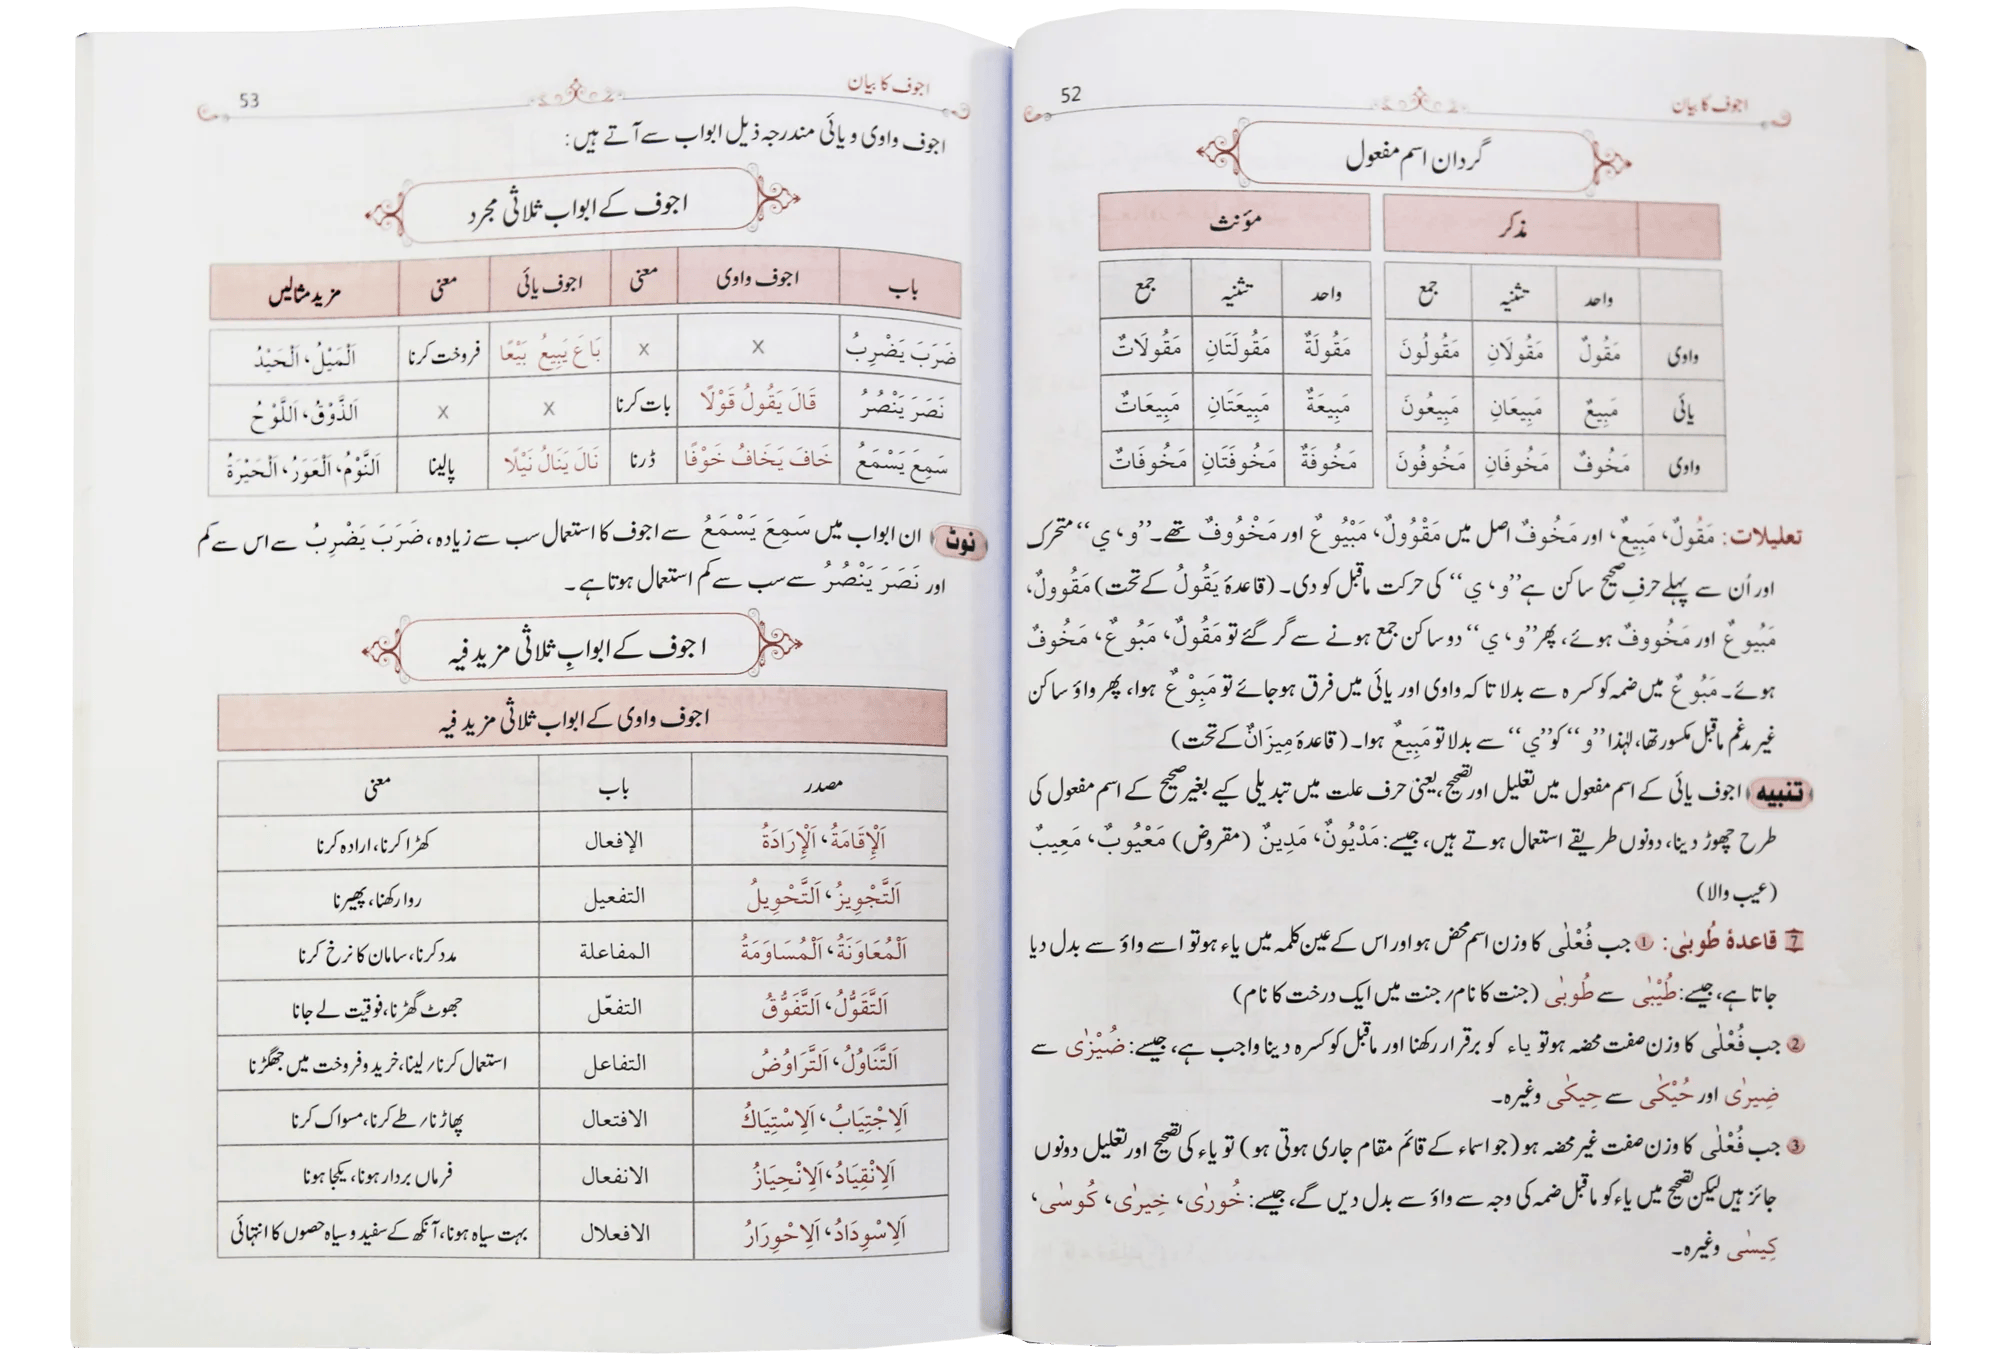 اجوف کا بیان 52
گردان اسم مفعول
مذکر مؤنث
واحد تثنیہ جمع واحد تثنیہ جمع
واوی مَقُولٌ مَقُولَانِ مَقُولُونَ مَقُولَةٌ مَقُولَتَانِ مَقُولَاتٌ
یائی مَبِيعٌ مَبِيعَانِ مَبِيعُونَ مَبِيعَةٌ مَبِيعَتَانِ مَبِيعَاتٌ
واوی مَخُوفٌ مَخُوفَانِ مَخُوفُونَ مَخُوفَةٌ مَخُوفَتَانِ مَخُوفَاتٌ
تعلیلات: مَقُولٌ، مَبِيعٌ، اور مَخُوفٌ اصل میں مَقْوُولٌ، مَبْيُوعٌ اور مَخْوُوفٌ تھے۔ ”و، ي“ متحرک
اور اُن سے پہلے حرفِ صحیح ساکن ہے ”و، ي“ کی حرکت ماقبل کو دی۔ (قاعدہ يَقُولُ کے تحت) مَقُوولٌ،
مَبُيوعٌ اور مَخُووفٌ ہوئے، پھر ”و، ي“ دو ساکن جمع ہونے سے گر گئے تو مَقُولٌ، مَبُوعٌ، مَخُوفٌ
ہوئے۔ مَبُوعٌ میں ضمہ کو کسرہ سے بدلا تاکہ واوی اور یائی میں فرق ہو جائے تو مَبِوْعٌ ہوا، پھر واؤ ساکن
غیر مدغم ماقبل مکسور تھا، لہٰذا ”و“ کو ”ي“ سے بدلا تو مَبِيعٌ ہوا۔ (قاعدہ مِيزَانٌ کے تحت)
تنبیہ اجوف یائی کے اسم مفعول میں تعلیل اور تصحیح، یعنی حرف علت میں تبدیلی کیے بغیر صحیح کے اسم مفعول کی
طرح چھوڑ دینا، دونوں طریقے استعمال ہوتے ہیں، جیسے: مَدْيُونٌ، مَدِينٌ (مقروض) مَعْيُوبٌ، مَعِيبٌ
(عیب والا)
7 قاعدہ طُوبٰى: 1 جب فُعْلٰى کا وزن اسم محض ہو اور اس کے عین کلمہ میں یاء ہو تو اسے واؤ سے بدل دیا
جاتا ہے، جیسے: طُيْبٰى سے طُوبٰى (جنت کا نام/ جنت میں ایک درخت کا نام)
2 جب فُعْلٰى کا وزن صفت محضہ ہو تو یاء کو برقرار رکھنا اور ماقبل کو کسرہ دینا واجب ہے، جیسے: ضُيْزٰى سے
ضِيزٰى اور حُيْكٰى سے حِيكٰى وغیرہ۔
3 جب فُعْلٰى کا وزن صفت غیر محضہ ہو (جو اسماء کے قائم مقام جاری ہوتی ہو) تو یاء کی تصحیح اور تعلیل دونوں
جائز ہیں لیکن تصحیح میں یاء کو ماقبل ضمہ کی وجہ سے واؤ سے بدل دیں گے، جیسے: خُورٰى، خِيرٰى، كُوسٰى،
كِيسٰى وغیرہ۔
اجوف کا بیان 53
اجوف واوی و یائی مندرجہ ذیل ابواب سے آتے ہیں:
اجوف کے ابواب ثلاثی مجرد
باب اجوف واوی معنی اجوف یائی معنی مزید مثالیں
ضَرَبَ يَضْرِبُ x x بَاعَ يَبِيعُ بَيْعًا فروخت کرنا اَلْمَيْلُ، اَلْحَيْدُ
نَصَرَ يَنْصُرُ قَالَ يَقُولُ قَوْلًا بات کرنا x x اَلذَّوْقُ، اَللَّوْحُ
سَمِعَ يَسْمَعُ خَافَ يَخَافُ خَوْفًا ڈرنا نَالَ يَنَالُ نَيْلًا پالینا اَلنَّوْمُ، اَلْعَوَرُ، اَلْحَيْرَةُ
نوٹ ان ابواب میں سَمِعَ يَسْمَعُ سے اجوف کا استعمال سب سے زیادہ، ضَرَبَ يَضْرِبُ سے اس سے کم
اور نَصَرَ يَنْصُرُ سے سب سے کم استعمال ہوتا ہے۔
اجوف کے ابوابِ ثلاثی مزید فیہ
اجوف واوی کے ابواب ثلاثی مزید فیہ
مصدر باب معنی
اَلْإِقَامَةُ، اَلْإِرَادَةُ الإفعال کھڑا کرنا، ارادہ کرنا
اَلتَّجْوِيزُ، اَلتَّحْوِيلُ التفعيل روا رکھنا، پھیرنا
اَلْمُعَاوَنَةُ، اَلْمُسَاوَمَةُ المفاعلة مدد کرنا، سامان کا نرخ کرنا
اَلتَّقَوُّلُ، اَلتَّفَوُّقُ التفعّل جھوٹ گھڑنا، فوقیت لے جانا
اَلتَّنَاوُلُ، اَلتَّرَاوُضُ التفاعل استعمال کرنا/ لینا، خرید و فروخت میں جھگڑنا
اَلِاجْتِيَابُ، اَلِاسْتِيَاكُ الافتعال پھاڑنا/ طے کرنا، مسواک کرنا
اَلِانْقِيَادُ، اَلِانْحِيَازُ الانفعال فرماں بردار ہونا، یکجا ہونا
اَلِاسْوِدَادُ، اَلِاحْوِرَارُ الافعلال بہت سیاہ ہونا، آنکھ کے سفید و سیاہ حصوں کا انتہائی